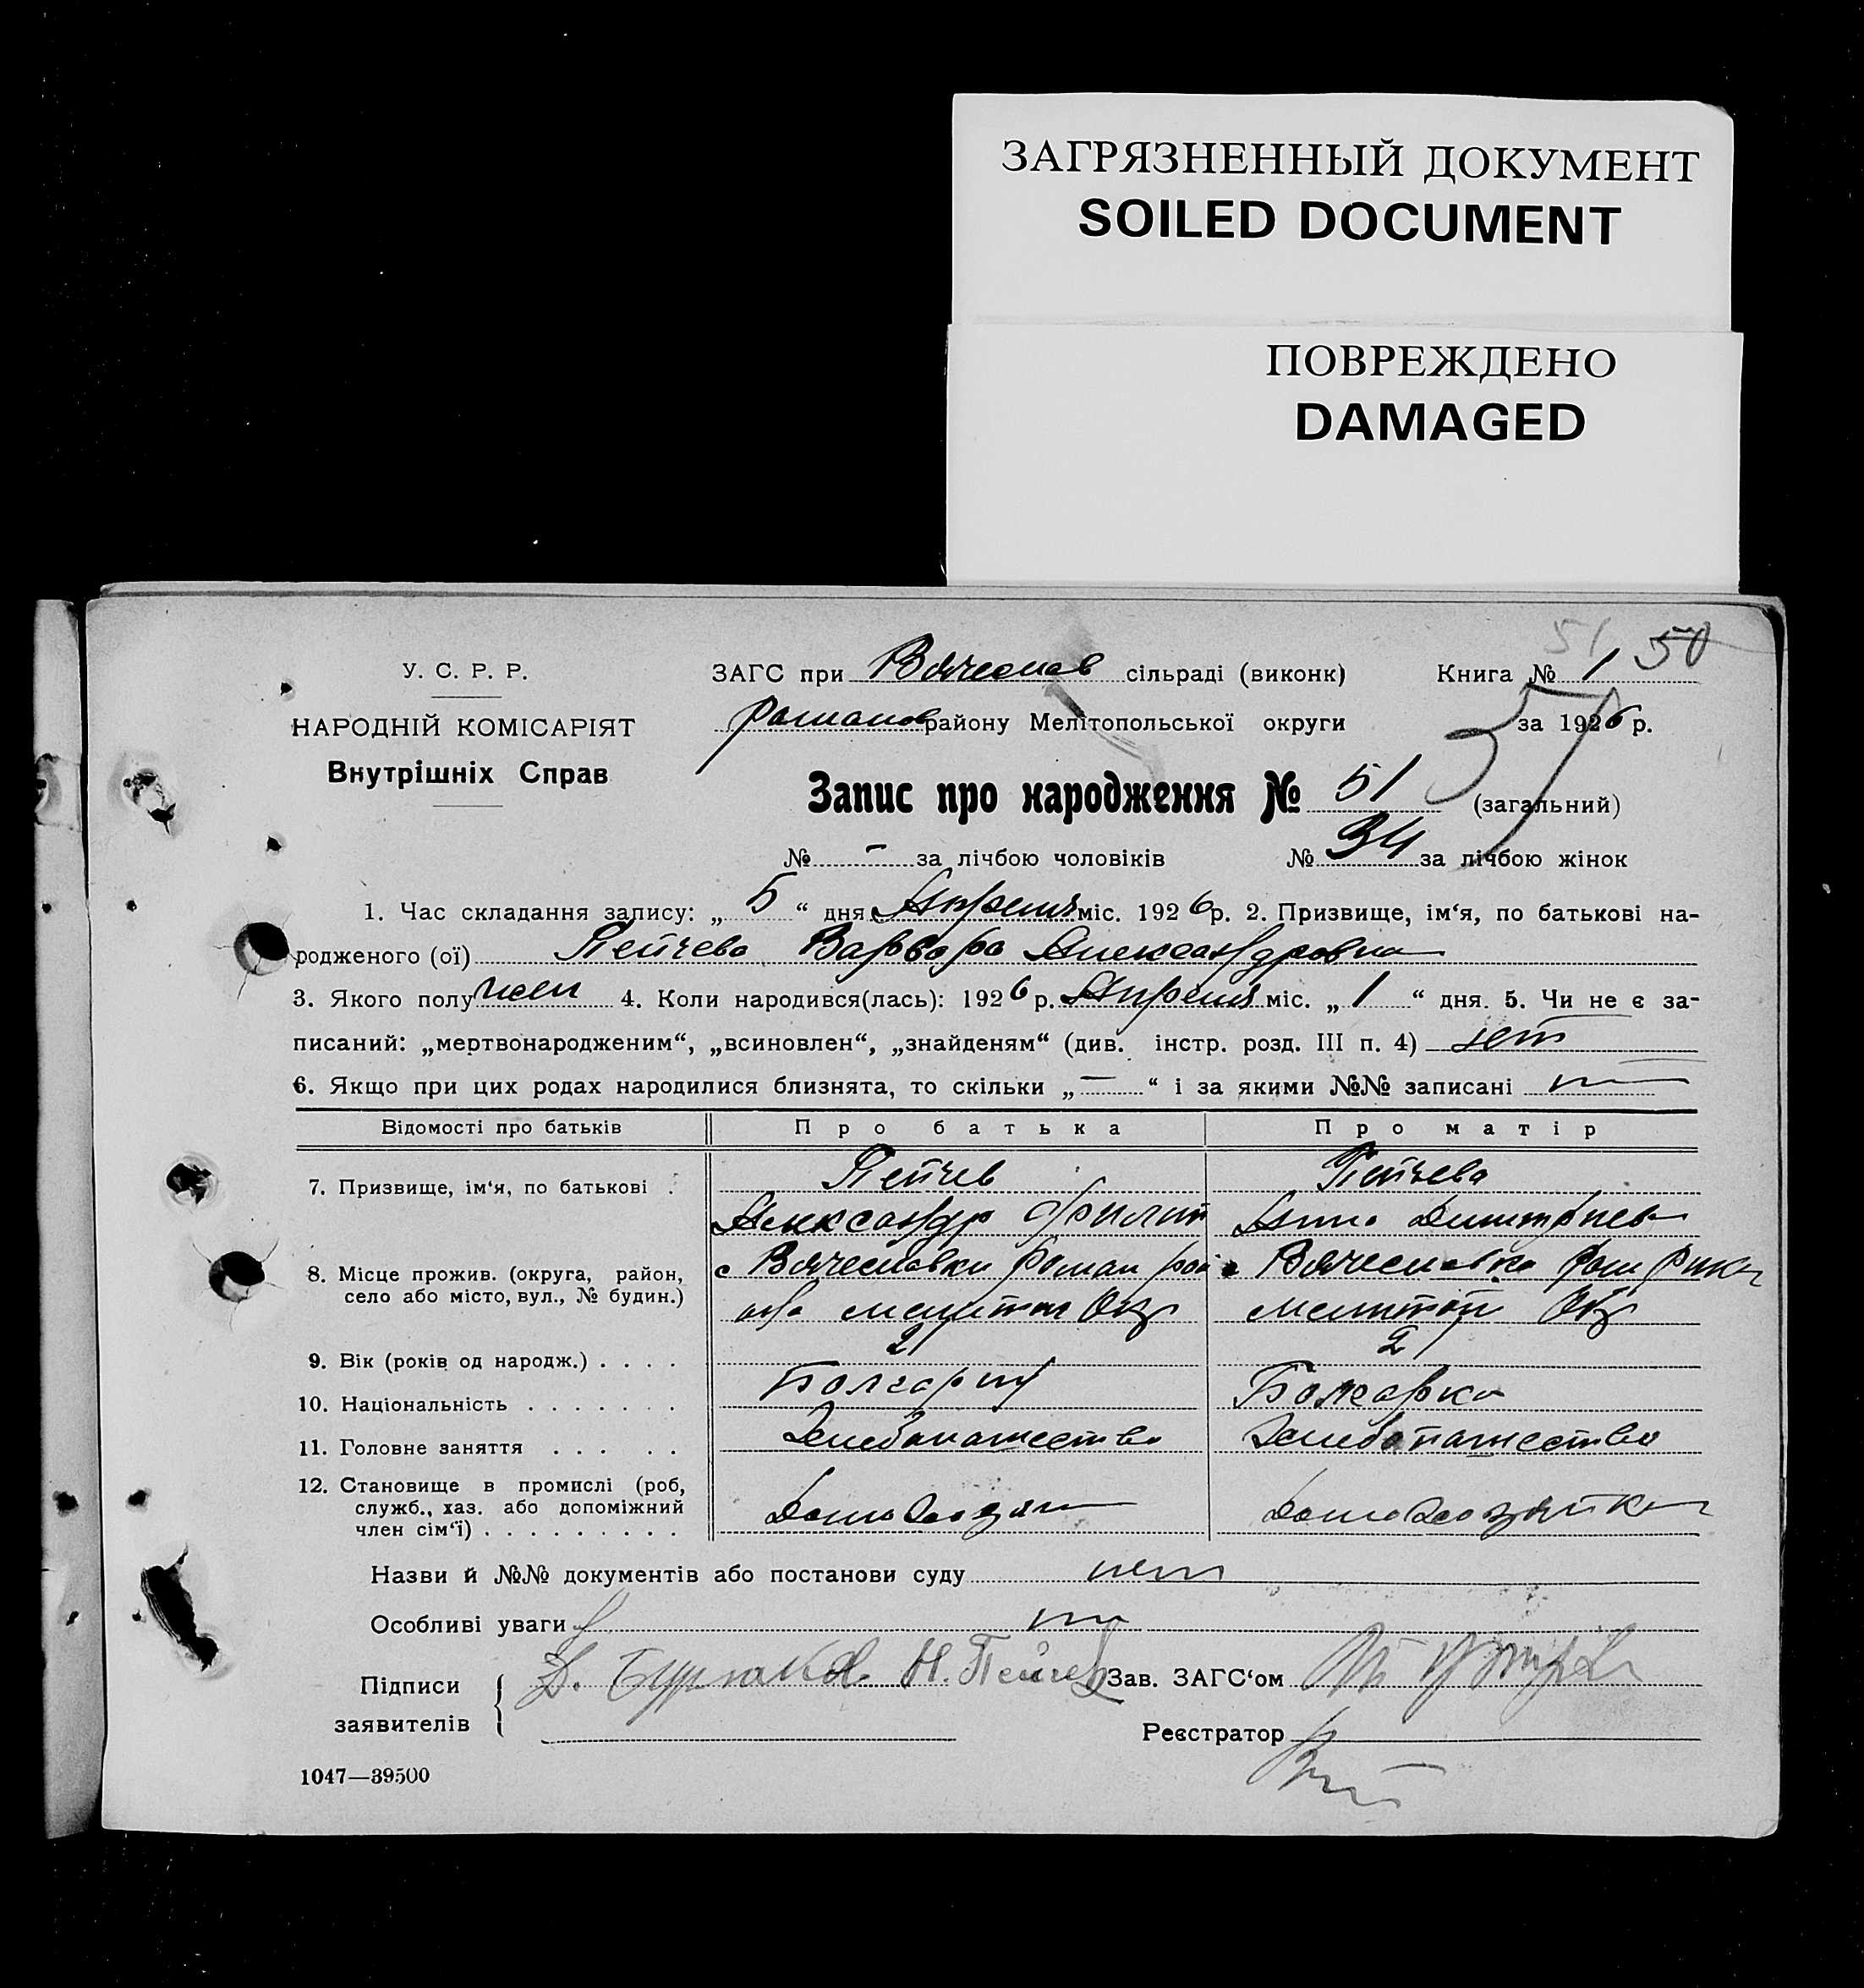 ЗАГРЯЗНЕННЫЙ ДОКУМЕНТ
SOILED DOCUMENT
ПОВРЕЖДЕНО
DAMAGED
51 50
У. С. Р. Р.
НАРОДНІЙ КОМІСАРІЯТ
Внутрішніх Справ
ЗАГС при Вячеслав сільраді (виконк) Книга № 1
Романов району Мелітопольської округи за 1926 р.
51
Запис про народження № 51 (загальний)
№ - за лічбою чоловіків № 34 за лічбою жінок
1. Час складання запису: „ 5 “ дня Апреля міс. 1926 р. 2. Призвище, ім‘я, по батькові на-
родженого (ої) Пейчева Варвара Александровна
3. Якого полу жен 4. Коли народився(лась): 1926 р. Апреля міс. „ 1 “ дня. 5. Чи не є за-
писаний: „мертвонародженим“, „всиновлен“, „знайденям“ (див. інстр. розд. III п. 4) нет
6. Якщо при цих родах народилися близнята, то скільки „ — “ і за якими №№ записані
Відомості про батьків Про батька Про матір
7. Призвище, ім‘я, по батькові . Пейчев Пейчева
Александр Филип Анна Дмитриев
8. Місце прожив. (округа, район, с Вячеславки Роман рай с Вячеславка Ром
село або місто, вул., № будин.) Мелитоп Окр Мелитоп Окр
9. Вік (років од народж.) . . . . 21 21
10. Національність . . . . . . . Болгарин Болгарка
11. Головне заняття . . . . . Хлебопашество Хлебопашество
12. Становище в промислі (роб,
служб., хаз. або допоміжний Домохозяин Домохозяйка
член сім‘ї) . . . . . . . . .
Назви й №№ документів або постанови суду нет
Особливі уваги
Підписи Д. Бурлаков Н. Пейчев Зав. ЗАГС‘ом
заявителів
Реєстратор
1047—39500